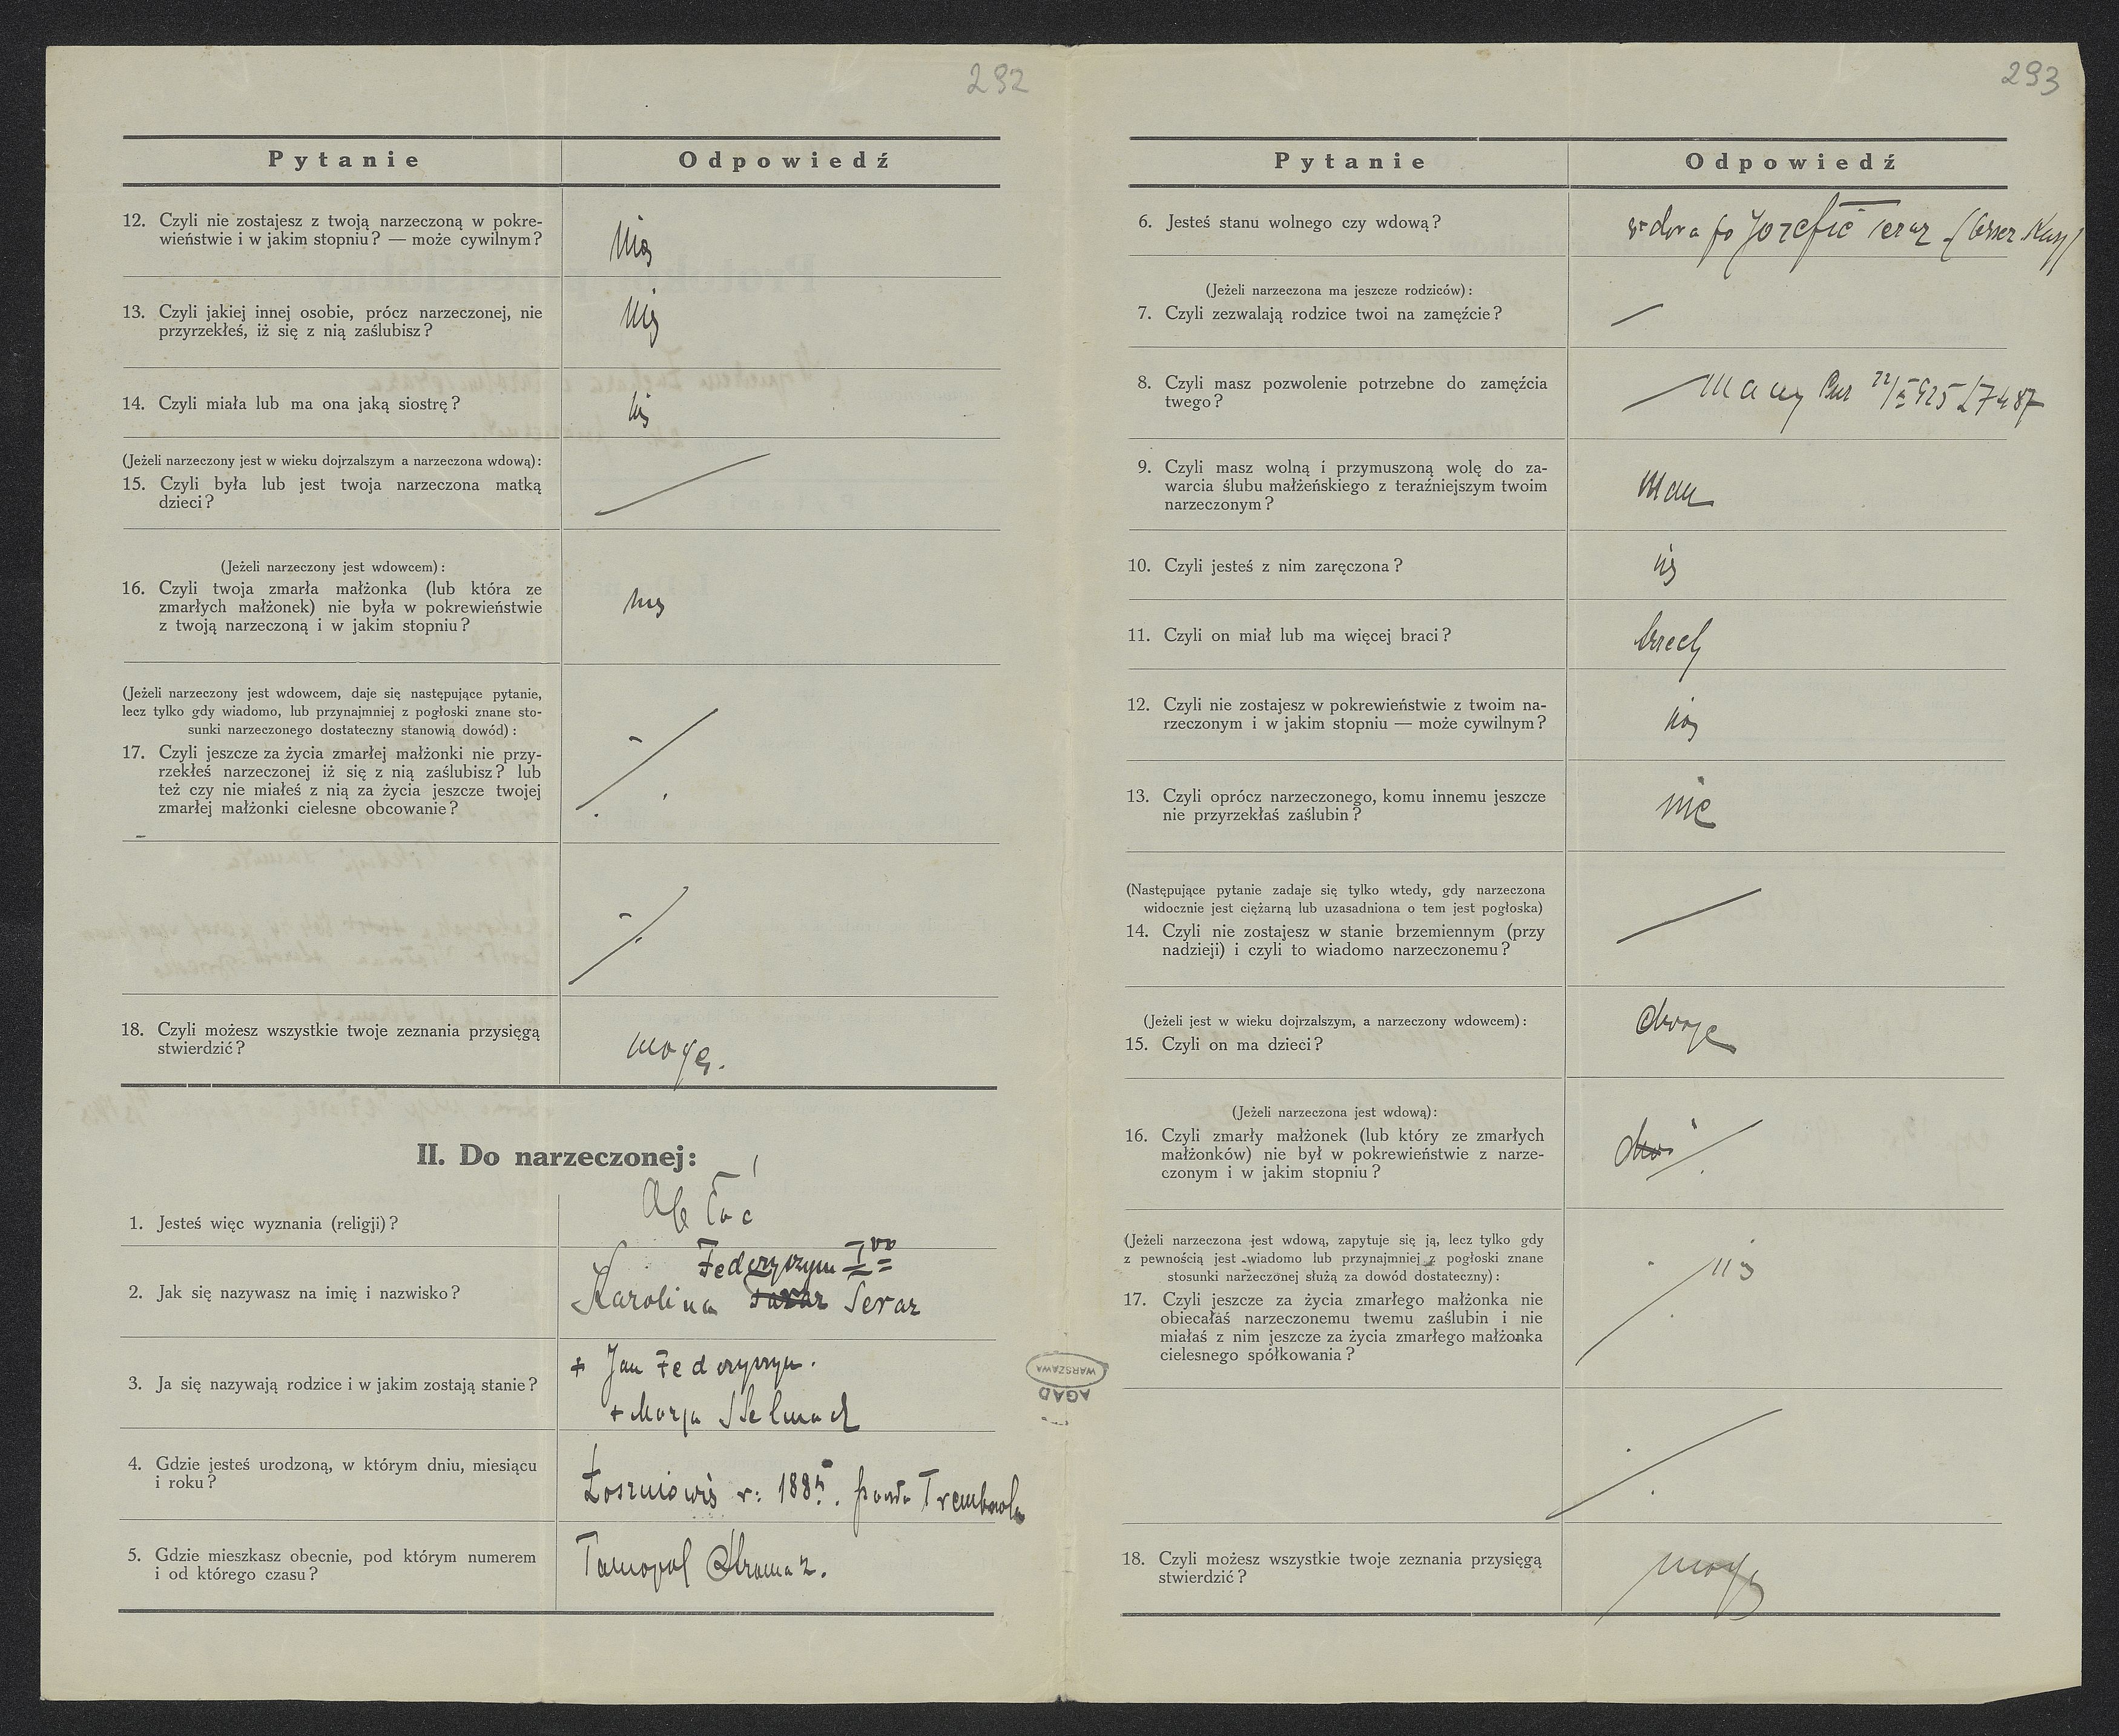 292
Pytanie
Odpowiedź
12. Czyli nie zostajesz z twoją narzeczoną w pokre-
wieństwie i w jakim stopniu? — może cywilnym?
nie
13. Czyli jakiej innej osobie, prócz narzeczonej, nie
przyrzekłeś, iż się z nią zaślubisz?
nie
14. Czyli miała lub ma ona jaką siostrę?
nie
(Jeżeli narzeczony jest w wieku dojrzalszym a narzeczona wdową):
15. Czyli była lub jest twoja narzeczona matką
dzieci?
(Jeżeli narzeczony jest wdowcem):
16. Czyli twoja zmarła małżonka (lub która ze
zmarłych małżonek) nie była w pokrewieństwie
z twoją narzeczoną i w jakim stopniu?
nie
(Jeżeli narzeczony jest wdowcem, daje się następujące pytanie,
lecz tylko gdy wiadomo, lub przynajmniej z pogłoski znane sto-
sunki narzeczonego dostateczny stanowią dowód):
17. Czyli jeszcze za życia zmarłej małżonki nie przy-
rzekłeś narzeczonej iż się z nią zaślubisz? lub
też czy nie miałeś z nią za życia jeszcze twojej
zmarłej małżonki cielesne obcowanie?
18. Czyli możesz wszystkie twoje zeznania przysięgą
stwierdzić?
mogę.
II. Do narzeczonej:
1. Jesteś więc wyznania (religji)?
2. Jak się nazywasz na imię i nazwisko?
Federyszyn
Karolina Seraz
3. Ja się nazywają rodzice i w jakim zostają stanie?
+ Jan Federyszyn.
+ Marja Stelmach
4. Gdzie jesteś urodzoną, w którym dniu, miesiącu
i roku?
Łoszniowie r: 1885. Trembowla
5. Gdzie mieszkasz obecnie, pod którym numerem
i od którego czasu?
Tarnopol
AGAD
WARSZAWA
293
Pytanie
Odpowiedź
6. Jesteś stanu wolnego czy wdową?
wdowa po Jozefie Seraz
(Jeżeli narzeczona ma jeszcze rodziców):
7. Czyli zezwalają rodzice twoi na zamęźcie?
8. Czyli masz pozwolenie potrzebne do zamęźcia
twego?
9. Czyli masz wolną i przymuszoną wolę do za-
warcia ślubu małżeńskiego z teraźniejszym twoim
narzeczonym?
mam
10. Czyli jesteś z nim zaręczona?
nie
11. Czyli on miał lub ma więcej braci?
trzech
12. Czyli nie zostajesz w pokrewieństwie z twoim na-
rzeczonym i w jakim stopniu — może cywilnym?
nie
13. Czyli oprócz narzeczonego, komu innemu jeszcze
nie przyrzekłaś zaślubin?
nie
(Następujące pytanie zadaje się tylko wtedy, gdy narzeczona
widocznie jest ciężarną lub uzasadniona o tem jest pogłoska)
14. Czyli nie zostajesz w stanie brzemiennym (przy
nadzieji) i czyli to wiadomo narzeczonemu?
(Jeżeli jest w wieku dojrzalszym, a narzeczony wdowcem):
15. Czyli on ma dzieci?
dwoje
(Jeżeli narzeczona jest wdową):
16. Czyli zmarły małżonek (lub który ze zmarłych
małżonków) nie był w pokrewieństwie z narze-
czonym i w jakim stopniu?
(Jeżeli narzeczona jest wdową, zapytuje się ją, lecz tylko gdy
z pewnością jest wiadomo lub przynajmniej z pogłoski znane
stosunki narzeczonej służą za dowód dostateczny):
17. Czyli jeszcze za życia zmarłego małżonka nie
obiecałaś narzeczonemu twemu zaślubin i nie
miałaś z nim jeszcze za życia zmarłego małżonka
cielesnego spółkowania?
nie
18. Czyli możesz wszystkie twoje zeznania przysięgą
stwierdzić?
mogę